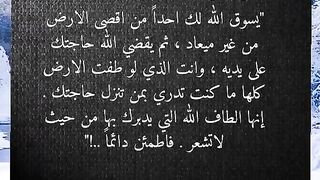 "يسوق الله لك احداً من اقصى الارض
من غير ميعاد ، ثم يقضي الله حاجتك
على يديه ، وانت الذي لو طفت الارض
كلها ما كنت تدري بمن تنزل حاجتك .
إنها الطاف الله التي يدبرك بها من حيث
لاتشعر . فاطمئن دائماً ..!"